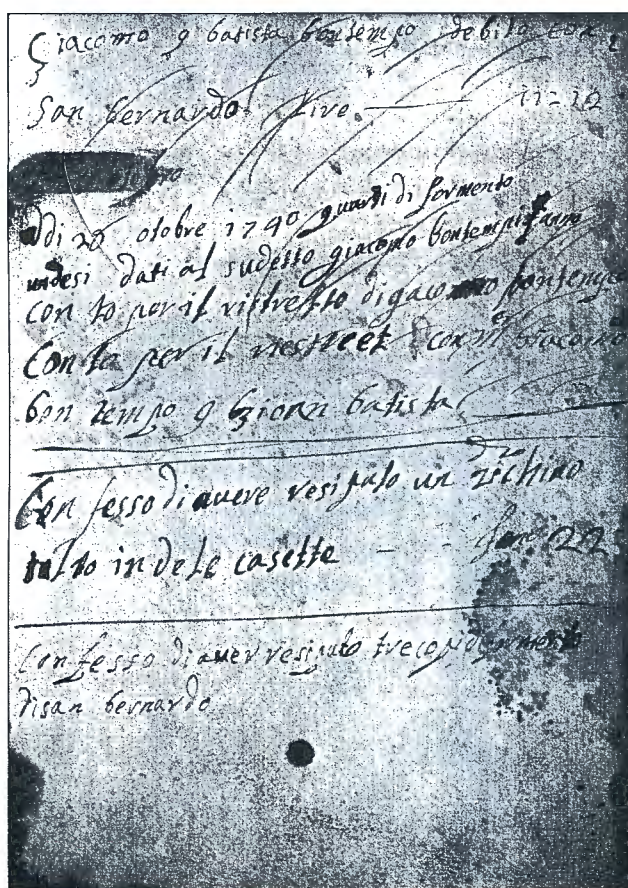 Giacomo q batista bontempo debito con
San bernardo Lire 11-12
Adi 20 otobre 1740 quardi di formento
undesi dati al sudetto giacomo bontempi
Con to per il ristretto di gacomo bontempo
Con to per il con giacomo
bon tempo q Gioan batista
Con fesso di avere resiputo un zechino
in dele casette 22
Con fesso di aver resiputo tre
di san bernardo